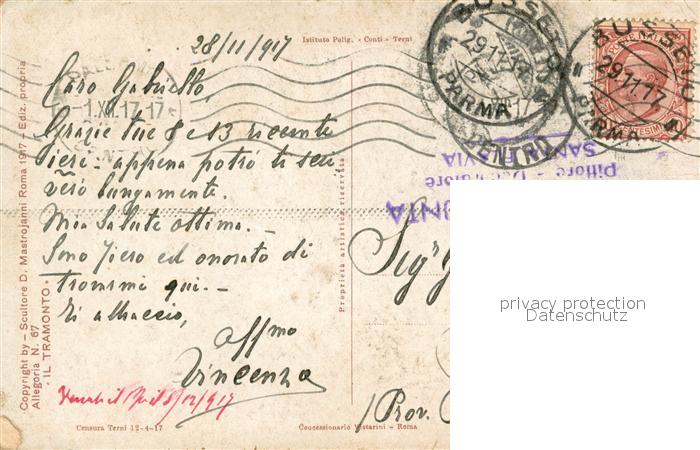 28/11/917
Istituto Polig. "Conti" - Terni
Caro Gabriello,
Grazie tue 8 e 13 ricevute
ieri - appena potrò ti scri
verò lungamente.
Mia salute ottima. -
Sono fiero ed onorato di
trovarmi qui. -
Ti abbraccio,
Affmo
Vincenzo
8/12/917
Censura Terni 12-4-17
Concessionario Vistarini - Roma
Copyright by - Scultore D. Mastrojanni Roma 1917 - Ediz. propria
Allegoria N. 67
"IL TRAMONTO"
Proprietà artistica riservata
BUSSETO
29.11.17
PARMA
BUSSETO
29.11.17
PARMA
1.XII.17
CENTRO
Pittore
SAN
VIA
Sig.
Prov.
privacy protection
Datenschutz